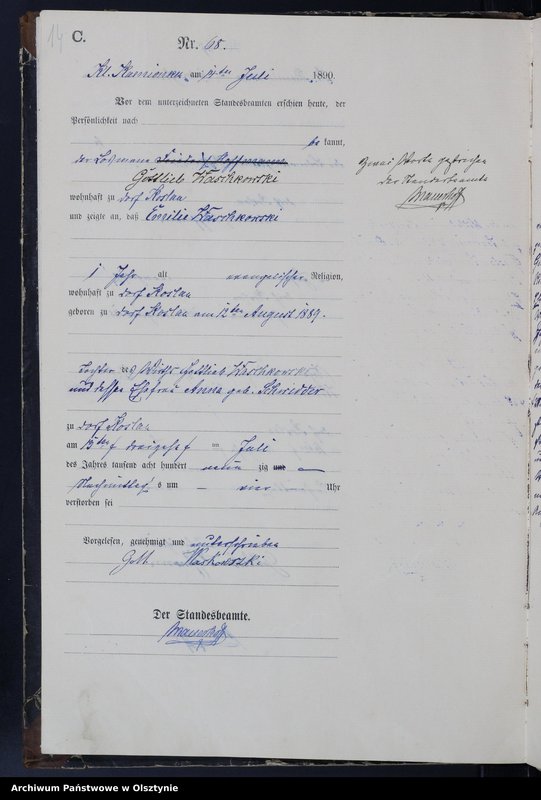 14
C.
Nr. 68.
Kl. Kamionken, am 14ten Juli 1890.
Vor dem unterzeichneten Standesbeamten erschien heute, der
Persönlichkeit nach
be kannt,
der Losmann Hoffmann
Gottlieb Waschkowski
wohnhaft zu Dorf Koslau
und zeigte an, daß Emilie Waschkowski
1 Jahr alt evangelischer Religion,
wohnhaft zu Dorf Koslau
geboren zu Dorf Koslau am 12ten August 1889.
Tochter des Wirths Gottlieb Waschkowski
und dessen Ehefrau Anna geb. Schwedder
zu Dorf Koslau
am 13ten dreizehn im Juli
des Jahres tausend acht hundert neun zig und —
Nachmittag s um — vier Uhr
verstorben sei
Vorgelesen, genehmigt und unterschrieben
Gott. Waskowszki
Der Standesbeamte.
Mauerhoff
Zwei Worte gestrichen
der Standesbeamte
Mauerhoff
Archiwum Państwowe w Olsztynie